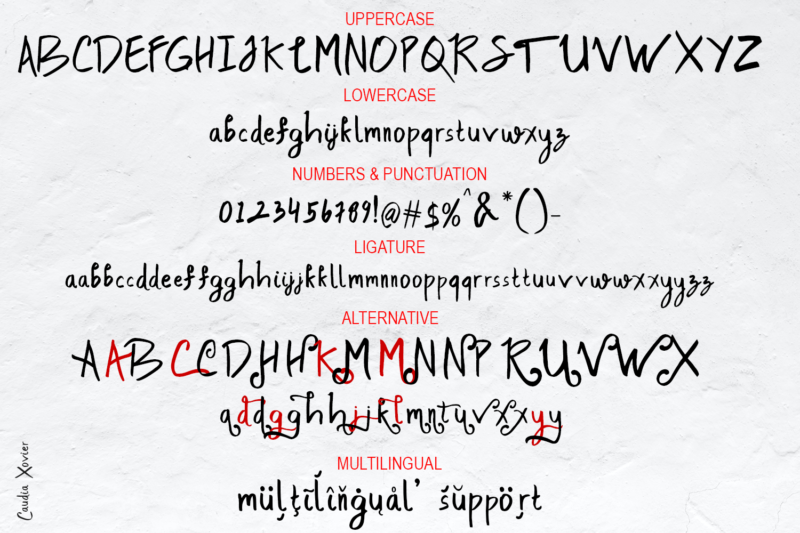 UPPERCASE
ABCDEFGHIJKLMNOPQRSTUVWXYZ
LOWERCASE
abcdefghijklmnopqrstuvwxyz
NUMBERS & PUNCTUATION
0123456789!@#$%^&*()-
LIGATURE
aabbccddeeffgghhiijjkkllmmnnooppqqrrssttuuvvwwxxyyzz
ALTERNATIVE
AABCCDHHKMMNNPRUVWX
addgghhjjkllmntuvxxyy
MULTILINGUAL
müļţĩĺîňġųåľ śŭppöŗt
Caudia Xovier